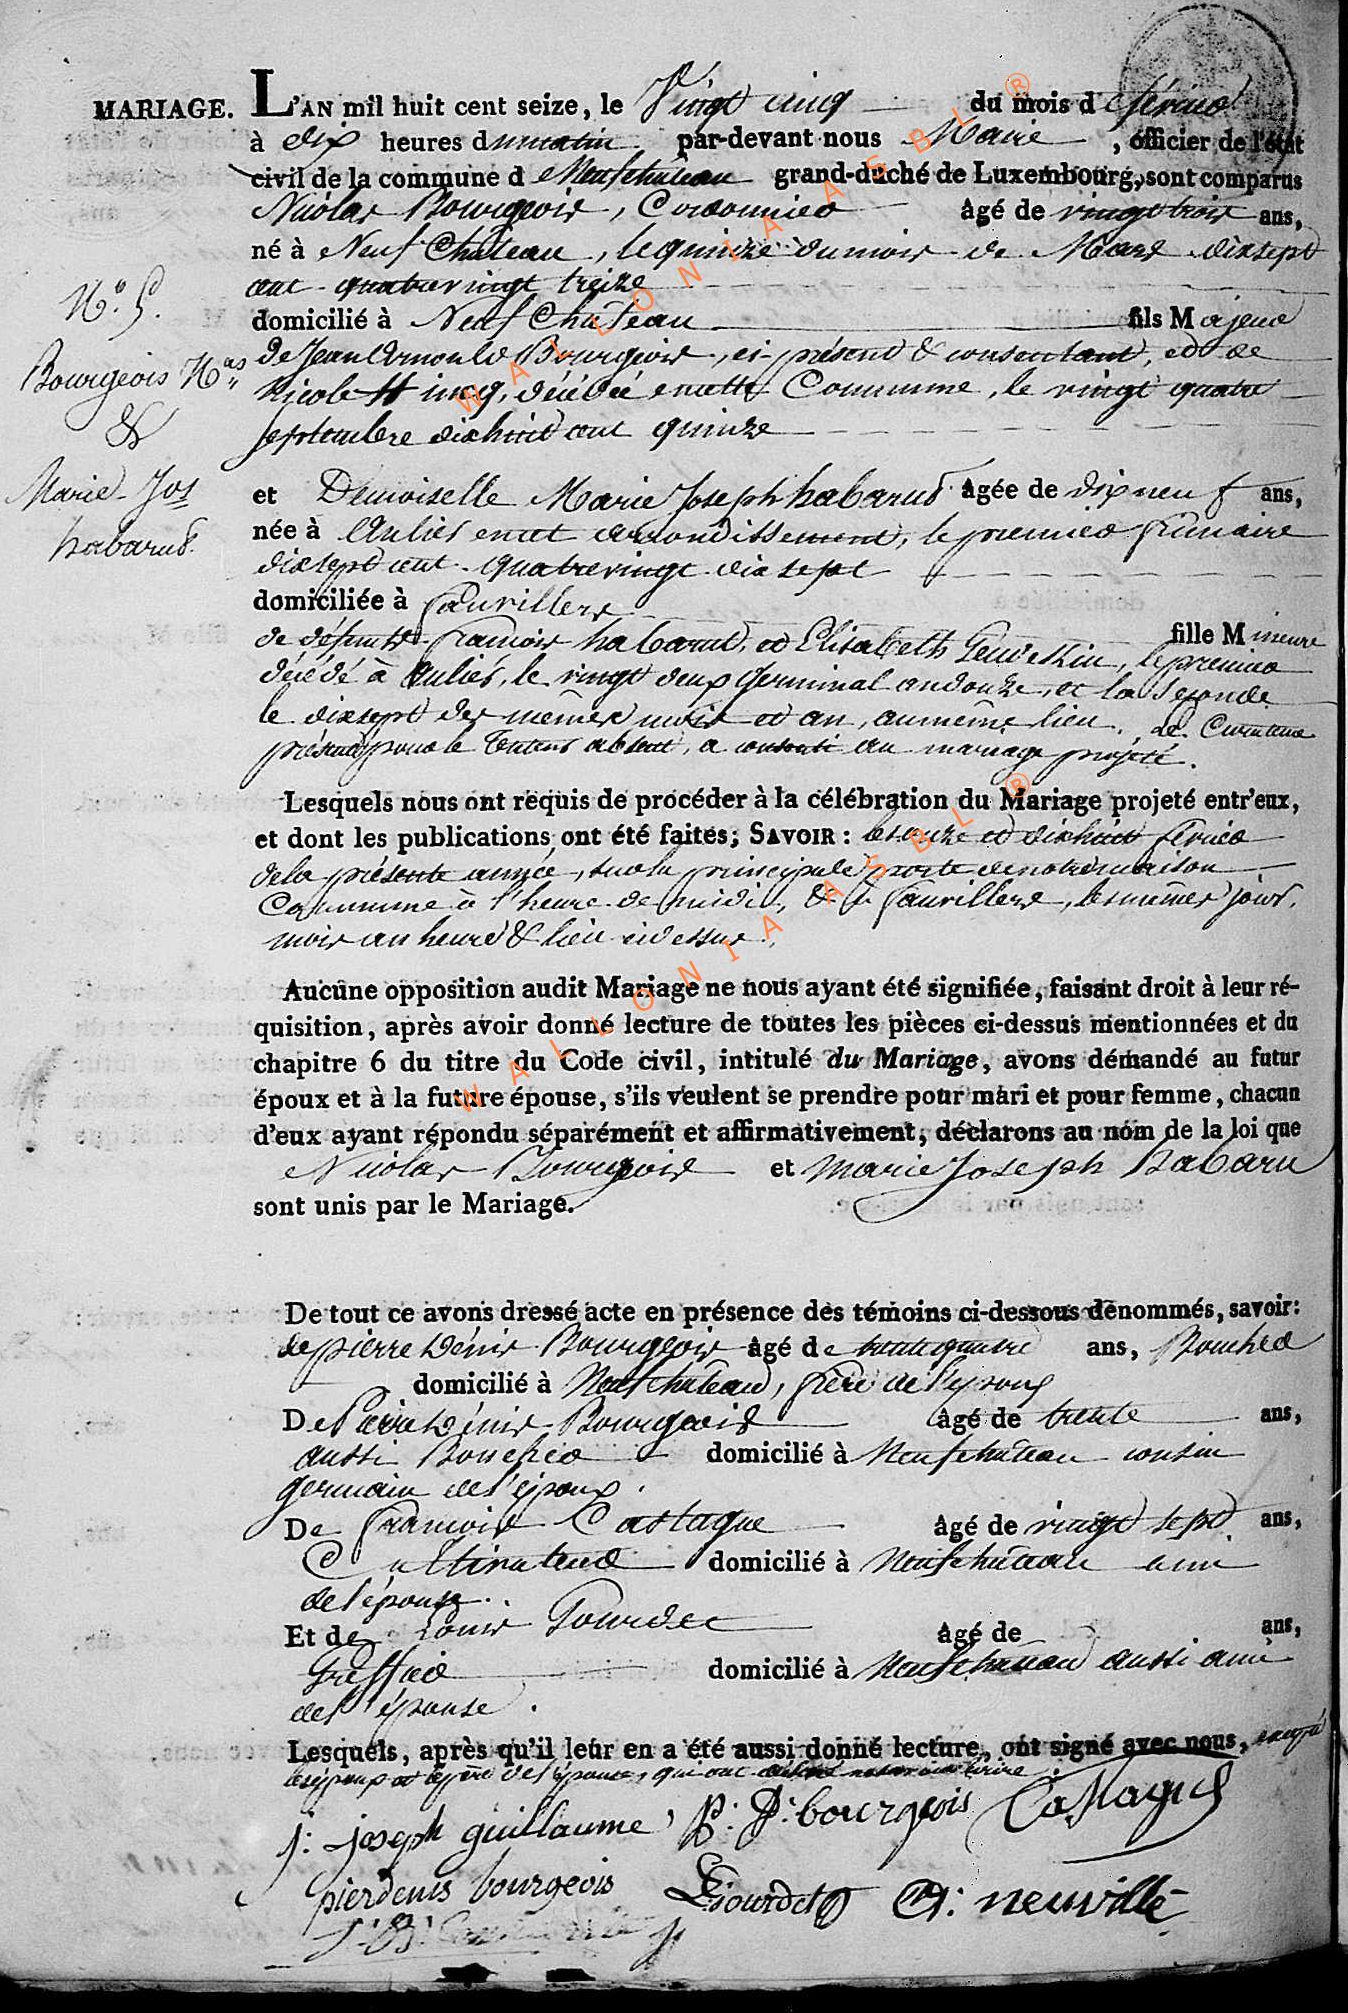 MARIAGE. L'AN mil huit cent seize, le Vingt cinq du mois d fevrier
à dix heures du matin par-devant nous Maire, officier de l'état
civil de la commune d Neufchateau grand-duché de Luxembourg, sont comparus
Nicolas Bourgeois, Cordonnier âgé de vingt trois ans,
né à Neuf Chateau, le quinze du mois de Mars dixsept
cent quatrevingt treize
domicilié à Neuf Château fils Majeur
de Jean Arnould Bourgeois, ci-présent & consentant, et de
Nicole , décédée en cette Commune, le vingt quatre
septembre dixhuit cent quinze
N.o 5.
Bourgeois N.as
&
Marie-Jos
habarud.
et Demoiselle Marie Joseph habarud âgée de dix neuf ans,
née à Anlier en cet arrondissement, le premier frimaire
dixsept cent quatrevingt dix sept
domiciliée à fauvillers
fille Mineure
de défunts françois habarud, et Elisabeth , le premier
décédé à Anlier, le vingt deux Germinal an douze, et la seconde
le dixsept des mêmes mois et an, au même lieu. Le Curateur
présent pour le Tuteur absent, a consenti au mariage projeté.
Lesquels nous ont requis de procéder à la célébration du Mariage projeté entr'eux,
et dont les publications ont été faites; SAVOIR : les onze et dixhuit fevrier
de la présente année, sur la principale porte de notre maison
Commune à l'heure de midi, & à fauvillers, les mêmes jours,
mois an heure & lieu ci dessus.
Aucune opposition audit Mariage ne nous ayant été signifiée, faisant droit à leur ré-
quisition, après avoir donné lecture de toutes les pièces ci-dessus mentionnées et du
chapitre 6 du titre du Code civil, intitulé du Mariage, avons démandé au futur
époux et à la future épouse, s'ils veulent se prendre pour mari et pour femme, chacun
d'eux ayant répondu séparément et affirmativement, déclarons au nom de la loi que
Nicolas Bourgeois et Marie Joseph habaru
sont unis par le Mariage.
De tout ce avons dressé acte en présence des témoins ci-dessous dénommés, savoir:
de pierre Dénis Bourgeois âgé de trente quatre ans, Boucher
domicilié à Neufchâteau, frère de l'epoux
De Pierre Dénis Bourgeois âgé de trente ans,
aussi Boucher domicilié à Neufchâteau cousin
germain de l'époux.
De françois Castagne âgé de vingt sept ans,
Cultivateur domicilié à Neufchâteau ami
de l'épouse.
Et de Louis Gourdet âgé de ans,
Greffier domicilié à Neufchateau aussi ami
de l'épouse.
Lesquels, après qu'il leur en a été aussi donné lecture, ont signé avec nous, excepté
les époux et le père de l'époux, qui ont écrire
j: joseph guillaume P: D: bourgeois Castagne
pierdenis bourgeois L Gourdet A: neuville
WALLONIA ASBL ®
WALLONIA ASBL ®